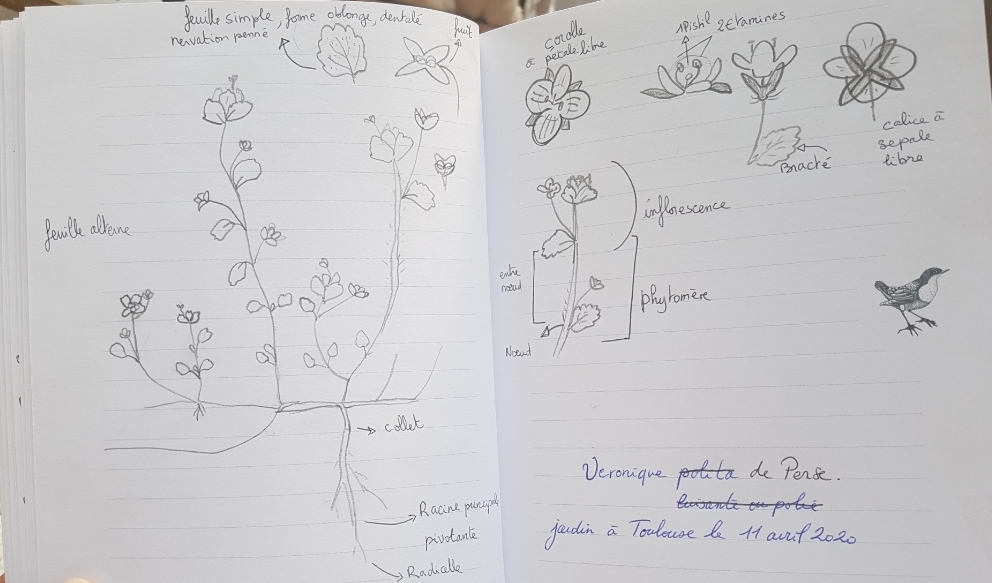 feuille simple, forme oblonge, dentelé
nervation penné
fruit
feuille alterne
collet
Racine principale
pivotante
Radicelle
corolle
à pétale libre
1 Pistil 2 Etamines
Bracté
calice à
sepale
libre
inflorescence
entre
nœud
phytomère
Nœud
Veronique polita de Perse.
luisante ou polie
jardin à Toulouse le 11 avril 2020